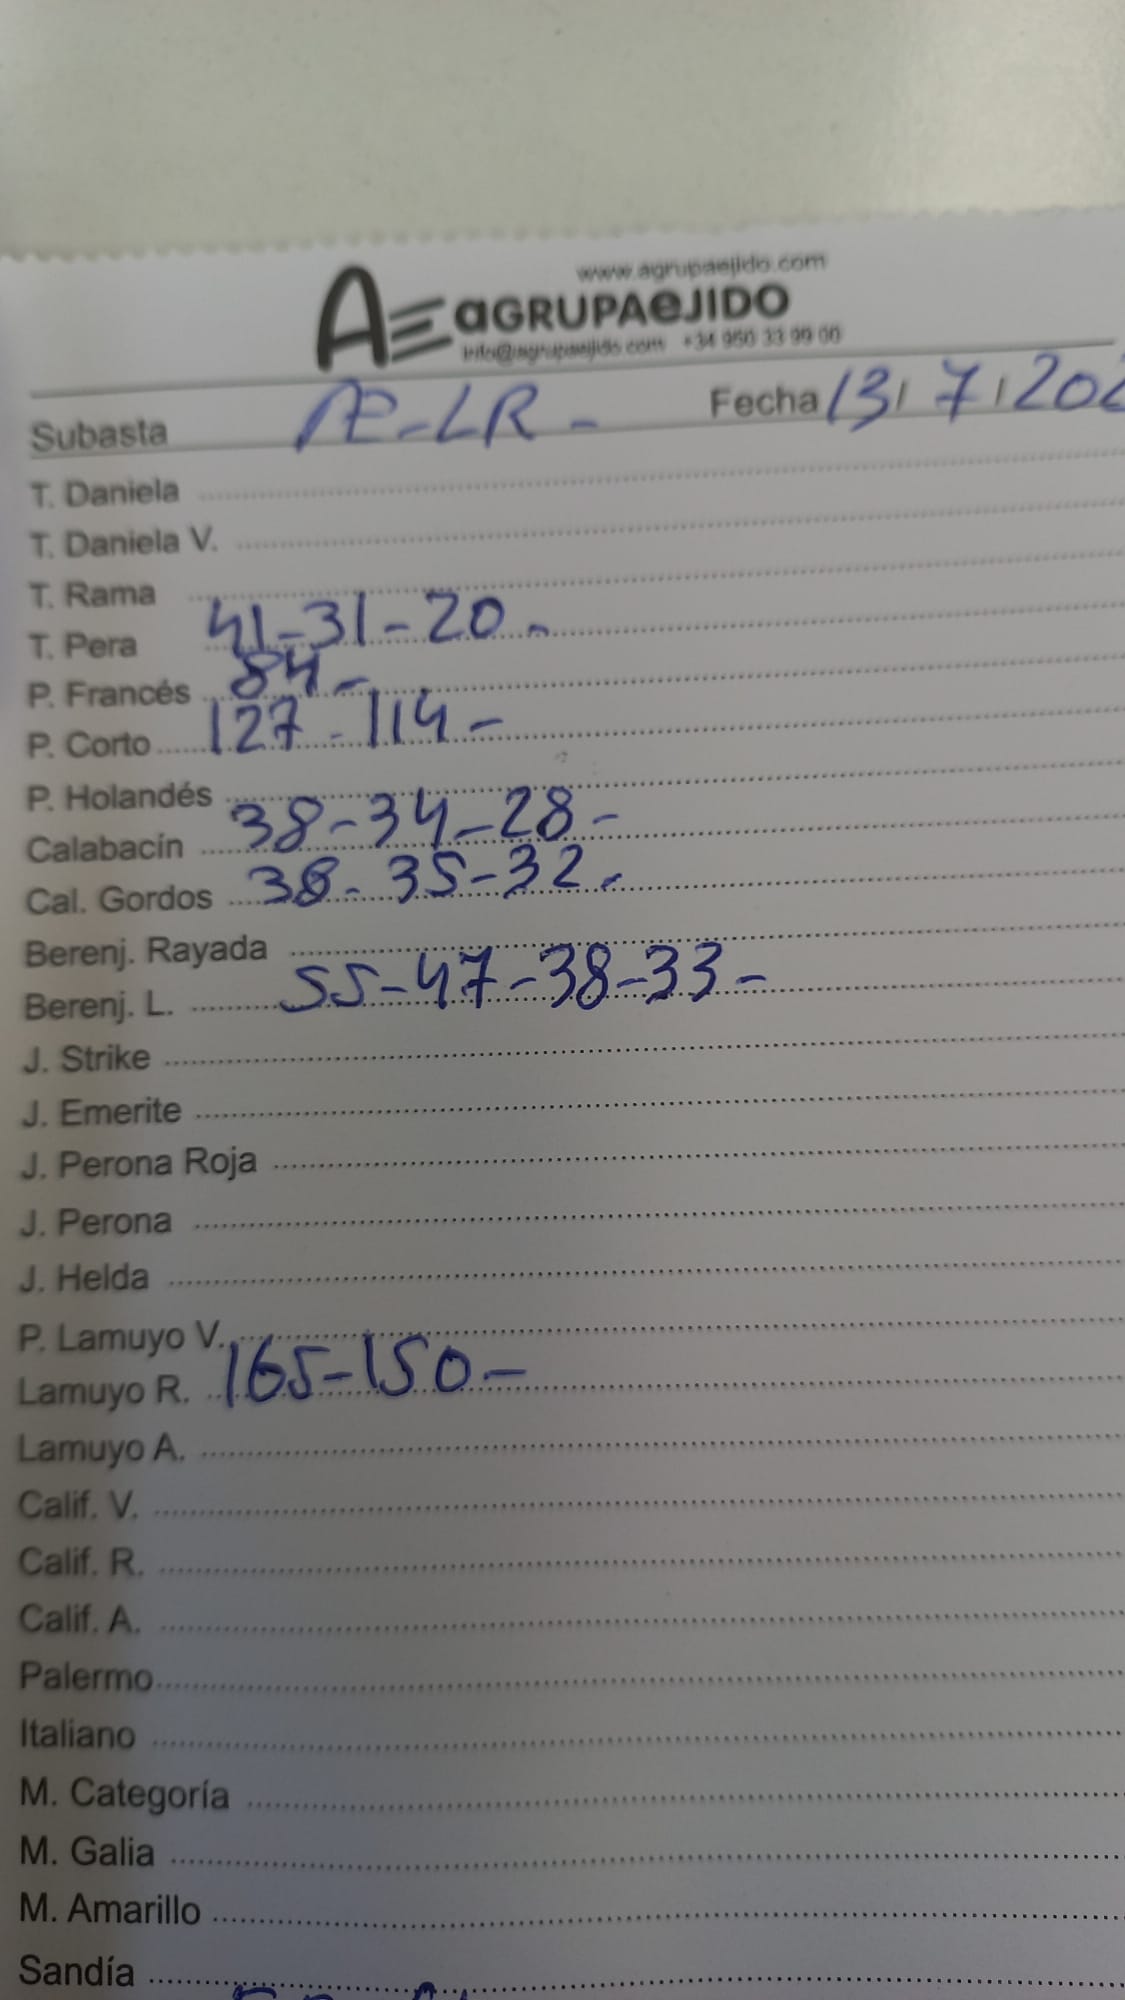 www.agrupaejido.com
AE aGRUPAeJIDO
info@agrupaejido.com +34 950 33 99 00
Subasta AE-LR- Fecha 13/7/202
T. Daniela
T. Daniela V.
T. Rama
T. Pera 41-31-20-
P. Francés 84-
P. Corto 127-114-
P. Holandés
Calabacín 38-34-28-
Cal. Gordos 38-35-32-
Berenj. Rayada
Berenj. L. 55-47-38-33-
J. Strike
J. Emerite
J. Perona Roja
J. Perona
J. Helda
P. Lamuyo V.
Lamuyo R. 165-150-
Lamuyo A.
Calif. V.
Calif. R.
Calif. A.
Palermo
Italiano
M. Categoría
M. Galia
M. Amarillo
Sandía